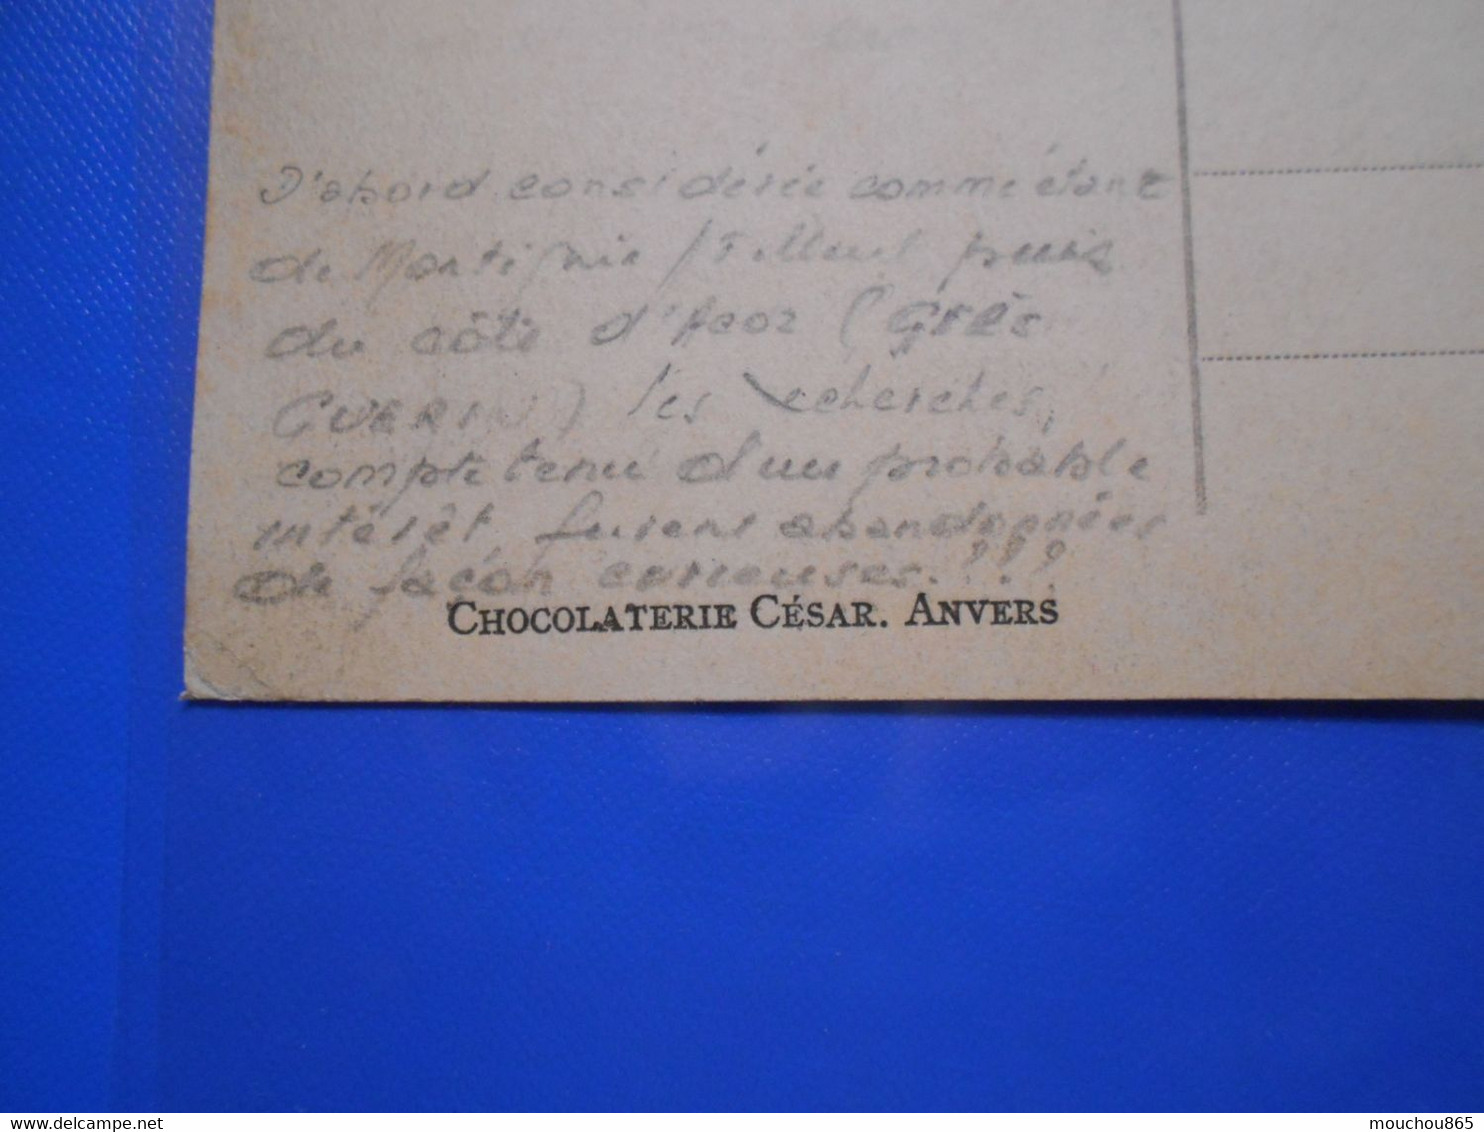 D'abord considérée comme étant
de Montignie / Tilleul puis
du côté d'Acoz (Grès
GUERIN) les recherches,
compte tenu d'un probable
intérêt furent abandonnées
de façon curieuses. !!!
CHOCOLATERIE CÉSAR. ANVERS
delcampe.net
mouchou865